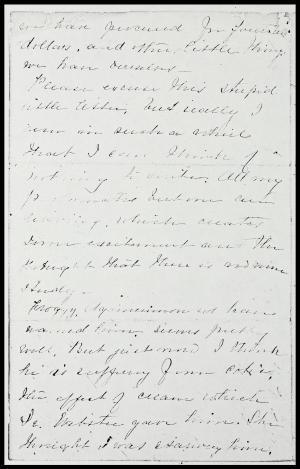 we have procured for fourteen
dollars, and other little things
we have ourselves—
Please excuse this stupid
little letter, but really I
am in such a whirl
that I can think of
nothing to write. All my
room mates but one are
leaving, which creates
some excitement and the
thought that there is
study.
Froggy, Agamemnon we have
named him seems pretty
well. But just now I think
he is suffering from colic,
the effect of cream which
Dr. Webster gave him. She
thought I was starving him.